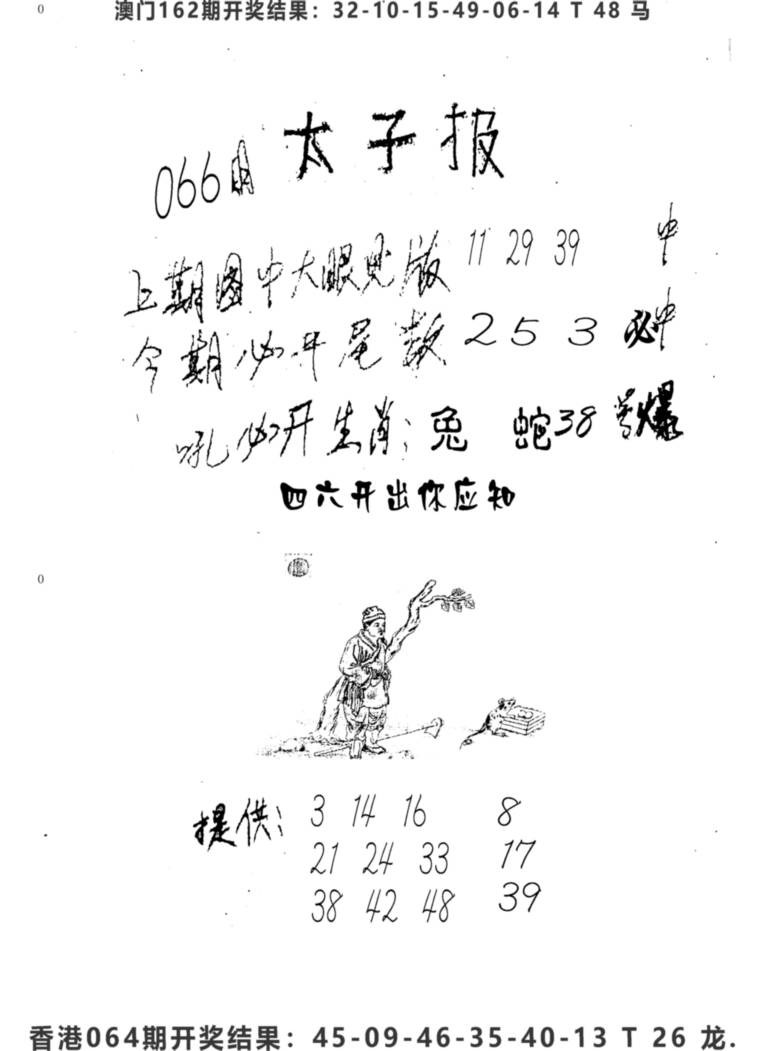 0
澳门162期开奖结果：32-10-15-49-06-14 T 48 马
太子报
066期
上期图中大眼见版 11 29 39 中
今期必开尾数 2 5 3 必中
吼必开生肖：兔 蛇38号爆
四六开出你应知
0
提供：3 14 16 8
21 24 33 17
38 42 48 39
香港064期开奖结果：45-09-46-35-40-13 T 26 龙.